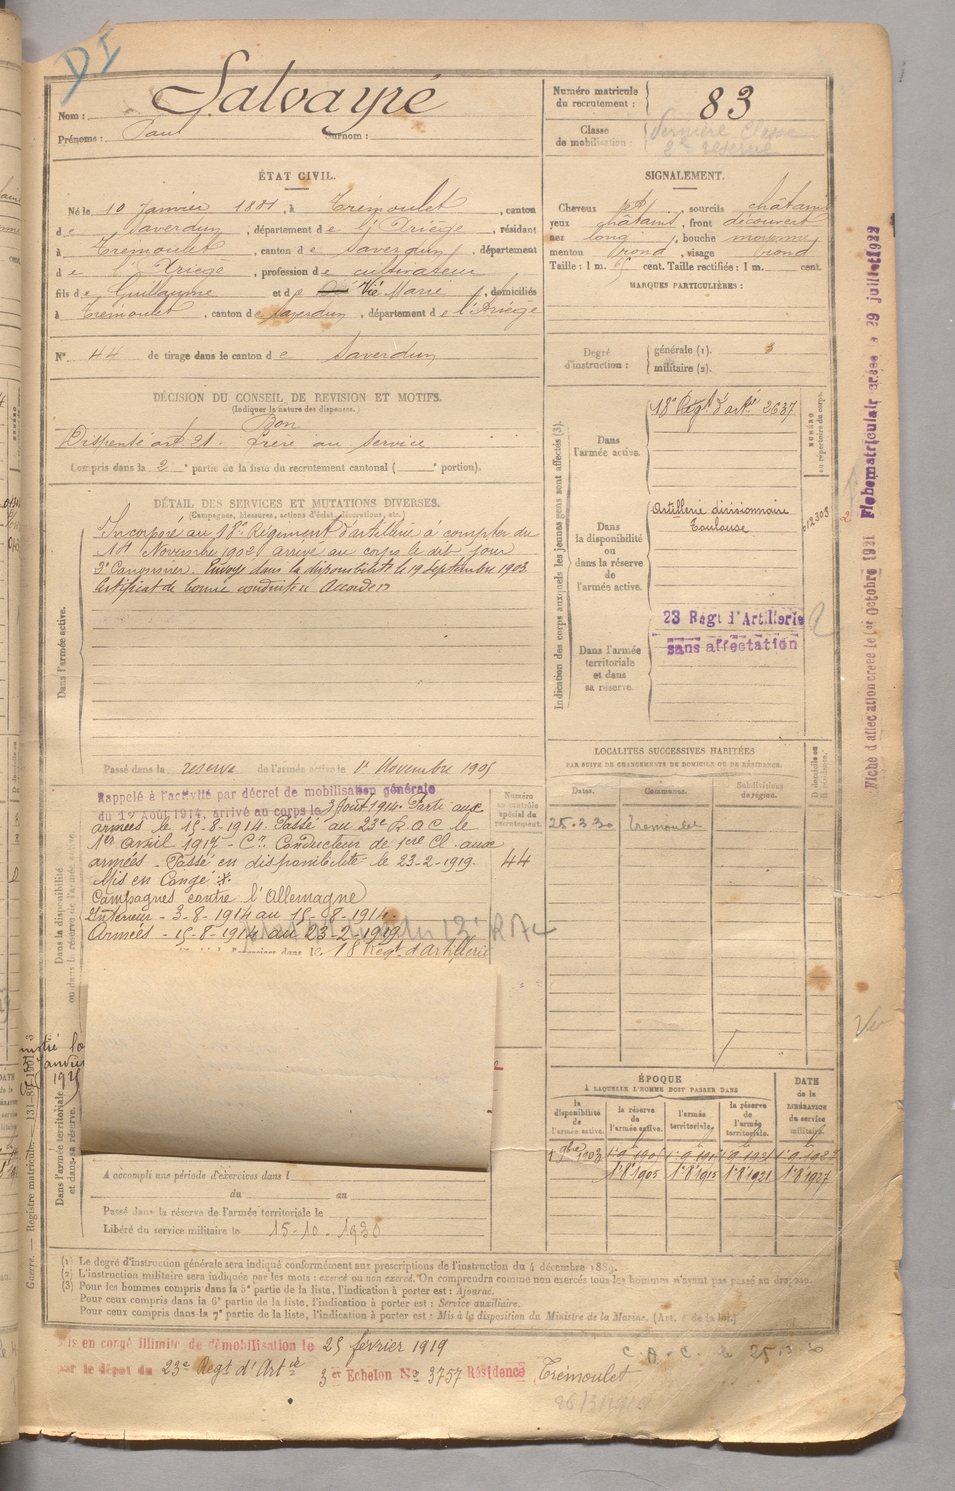 DI
Nom : Salvayré
Prénoms : Paul Surnom :
Numéro matricule du recrutement : 83
Classe de mobilisation : Dernière Classe
2e réserve
ÉTAT CIVIL.
Né le 10 Janvier 1881, à Trémoulet, canton
de Saverdun, département de l'Ariège, résidant
à Trémoulet, canton de Saverdun, département
de l'Ariège, profession de cultivateur
fils de Guillaume et de Vié Marie, domiciliés
à Trémoulet, canton de Saverdun, département de l'Ariège
N° 44 de tirage dans le canton de Saverdun
SIGNALEMENT.
Cheveux , sourcils châtains
yeux châtains, front découvert
nez long, bouche moyenne
menton rond, visage rond
Taille : 1 m. cent. Taille rectifiée : 1 m. cent.
MARQUES PARTICULIÈRES :
Degré d'instruction : générale (1). 3
militaire (2).
DÉCISION DU CONSEIL DE REVISION ET MOTIFS.
(Indiquer la nature des dispenses.)
Bon
Dispensé art. 21. frère au service
Compris dans la 2e partie de la liste du recrutement cantonal ( e portion).
DÉTAIL DES SERVICES ET MUTATIONS DIVERSES.
(Campagnes, blessures, actions d'éclat, décorations, etc.)
Dans l'armée active.
Incorporé au 18e Régiment d'artillerie à compter du
14 Novembre 1902 arrivé au corps le dit jour
2e Canonnier. Envoyé dans la disponibilité le 19 septembre 1903.
Certificat de bonne conduite "Accordé"
Passé dans la réserve de l'armée active le 1er Novembre 1905
Dans la disponibilité ou dans la réserve de l'armée active.
Rappelé à l'activité par décret de mobilisation générale
du 1er Août 1914, arrivé au corps le 3 Août 1914. Parti aux
armées le 15-8-1914. Passé au 23e R.A.C le
1er avril 1917 - Cr Conducteur de 1ere Cl. aux
armées - Passé en disponibilité le 23-2-1919.
Mis en Congé *.
Campagnes contre l'Allemagne
Intérieur - 3-8-1914 au 15-8-1914.
Armées - 15-8-1914 au 23-2-1919
du 12e RAC
dans le 18 Regt d'Artillerie
Numéro au contrôle spécial du recrutement.
44
Indication des corps auxquels les jeunes gens sont affectés (3).
Dans l'armée active.
18e Regt d'artie 2637
NUMÉRO au répertoire du corps.
Dans la disponibilité ou dans la réserve de l'armée active.
Artillerie divisionnaire
Toulouse
Dans l'armée territoriale et dans sa réserve.
23 Regt d'Artillerie
sans affectation
Fiche d'affectation créée le 1er Octobre 1921 Fiche matriculaire créée le 29 juillet 1922
LOCALITÉS SUCCESSIVES HABITÉES
PAR SUITE DE CHANGEMENTS DE DOMICILE OU DE RÉSIDENCE.
Dates. Communes. Subdivisions de région. D. domicile ou R. résidence.
25.3.30 Tremoulet
Vu
Dans l'armée territoriale et dans sa réserve.
A accompli une période d'exercices dans l
du au
Passé dans la réserve de l'armée territoriale le
Libéré du service militaire le 15-10-1930
ÉPOQUE
À LAQUELLE L'HOMME DOIT PASSER DANS
DATE de la LIBÉRATION du service militaire.
la disponibilité de l'armée active. la réserve de l'armée active. l'armée territoriale. la réserve de l'armée territoriale.
1 9bre 1903
1er 8 1905 1er 8 1915 1er 8 1921 1er 8 1927
Guerre. — Registre matricule.
(1) Le degré d'instruction générale sera indiqué conformément aux prescriptions de l'instruction du 4 décembre 1889.
(2) L'instruction militaire sera indiquée par les mots : exercé ou non exercé. On comprendra comme non exercés tous les hommes n'ayant pas passé au drapeau.
(3) Pour les hommes compris dans la 5e partie de la liste, l'indication à porter est : Ajourné.
Pour ceux compris dans la 6e partie de la liste, l'indication à porter est : Service auxiliaire.
Pour ceux compris dans la 7e partie de la liste, l'indication à porter est : Mis à la disposition du Ministre de la Marine. (Art. 4 de la loi.)
Mis en congé illimité de démobilisation le 25 février 1919
par le dépôt du 23e Regt d'Artie 3er Echelon No 3757 Résidence Trémoulet
C.A.C. le 25.3.30